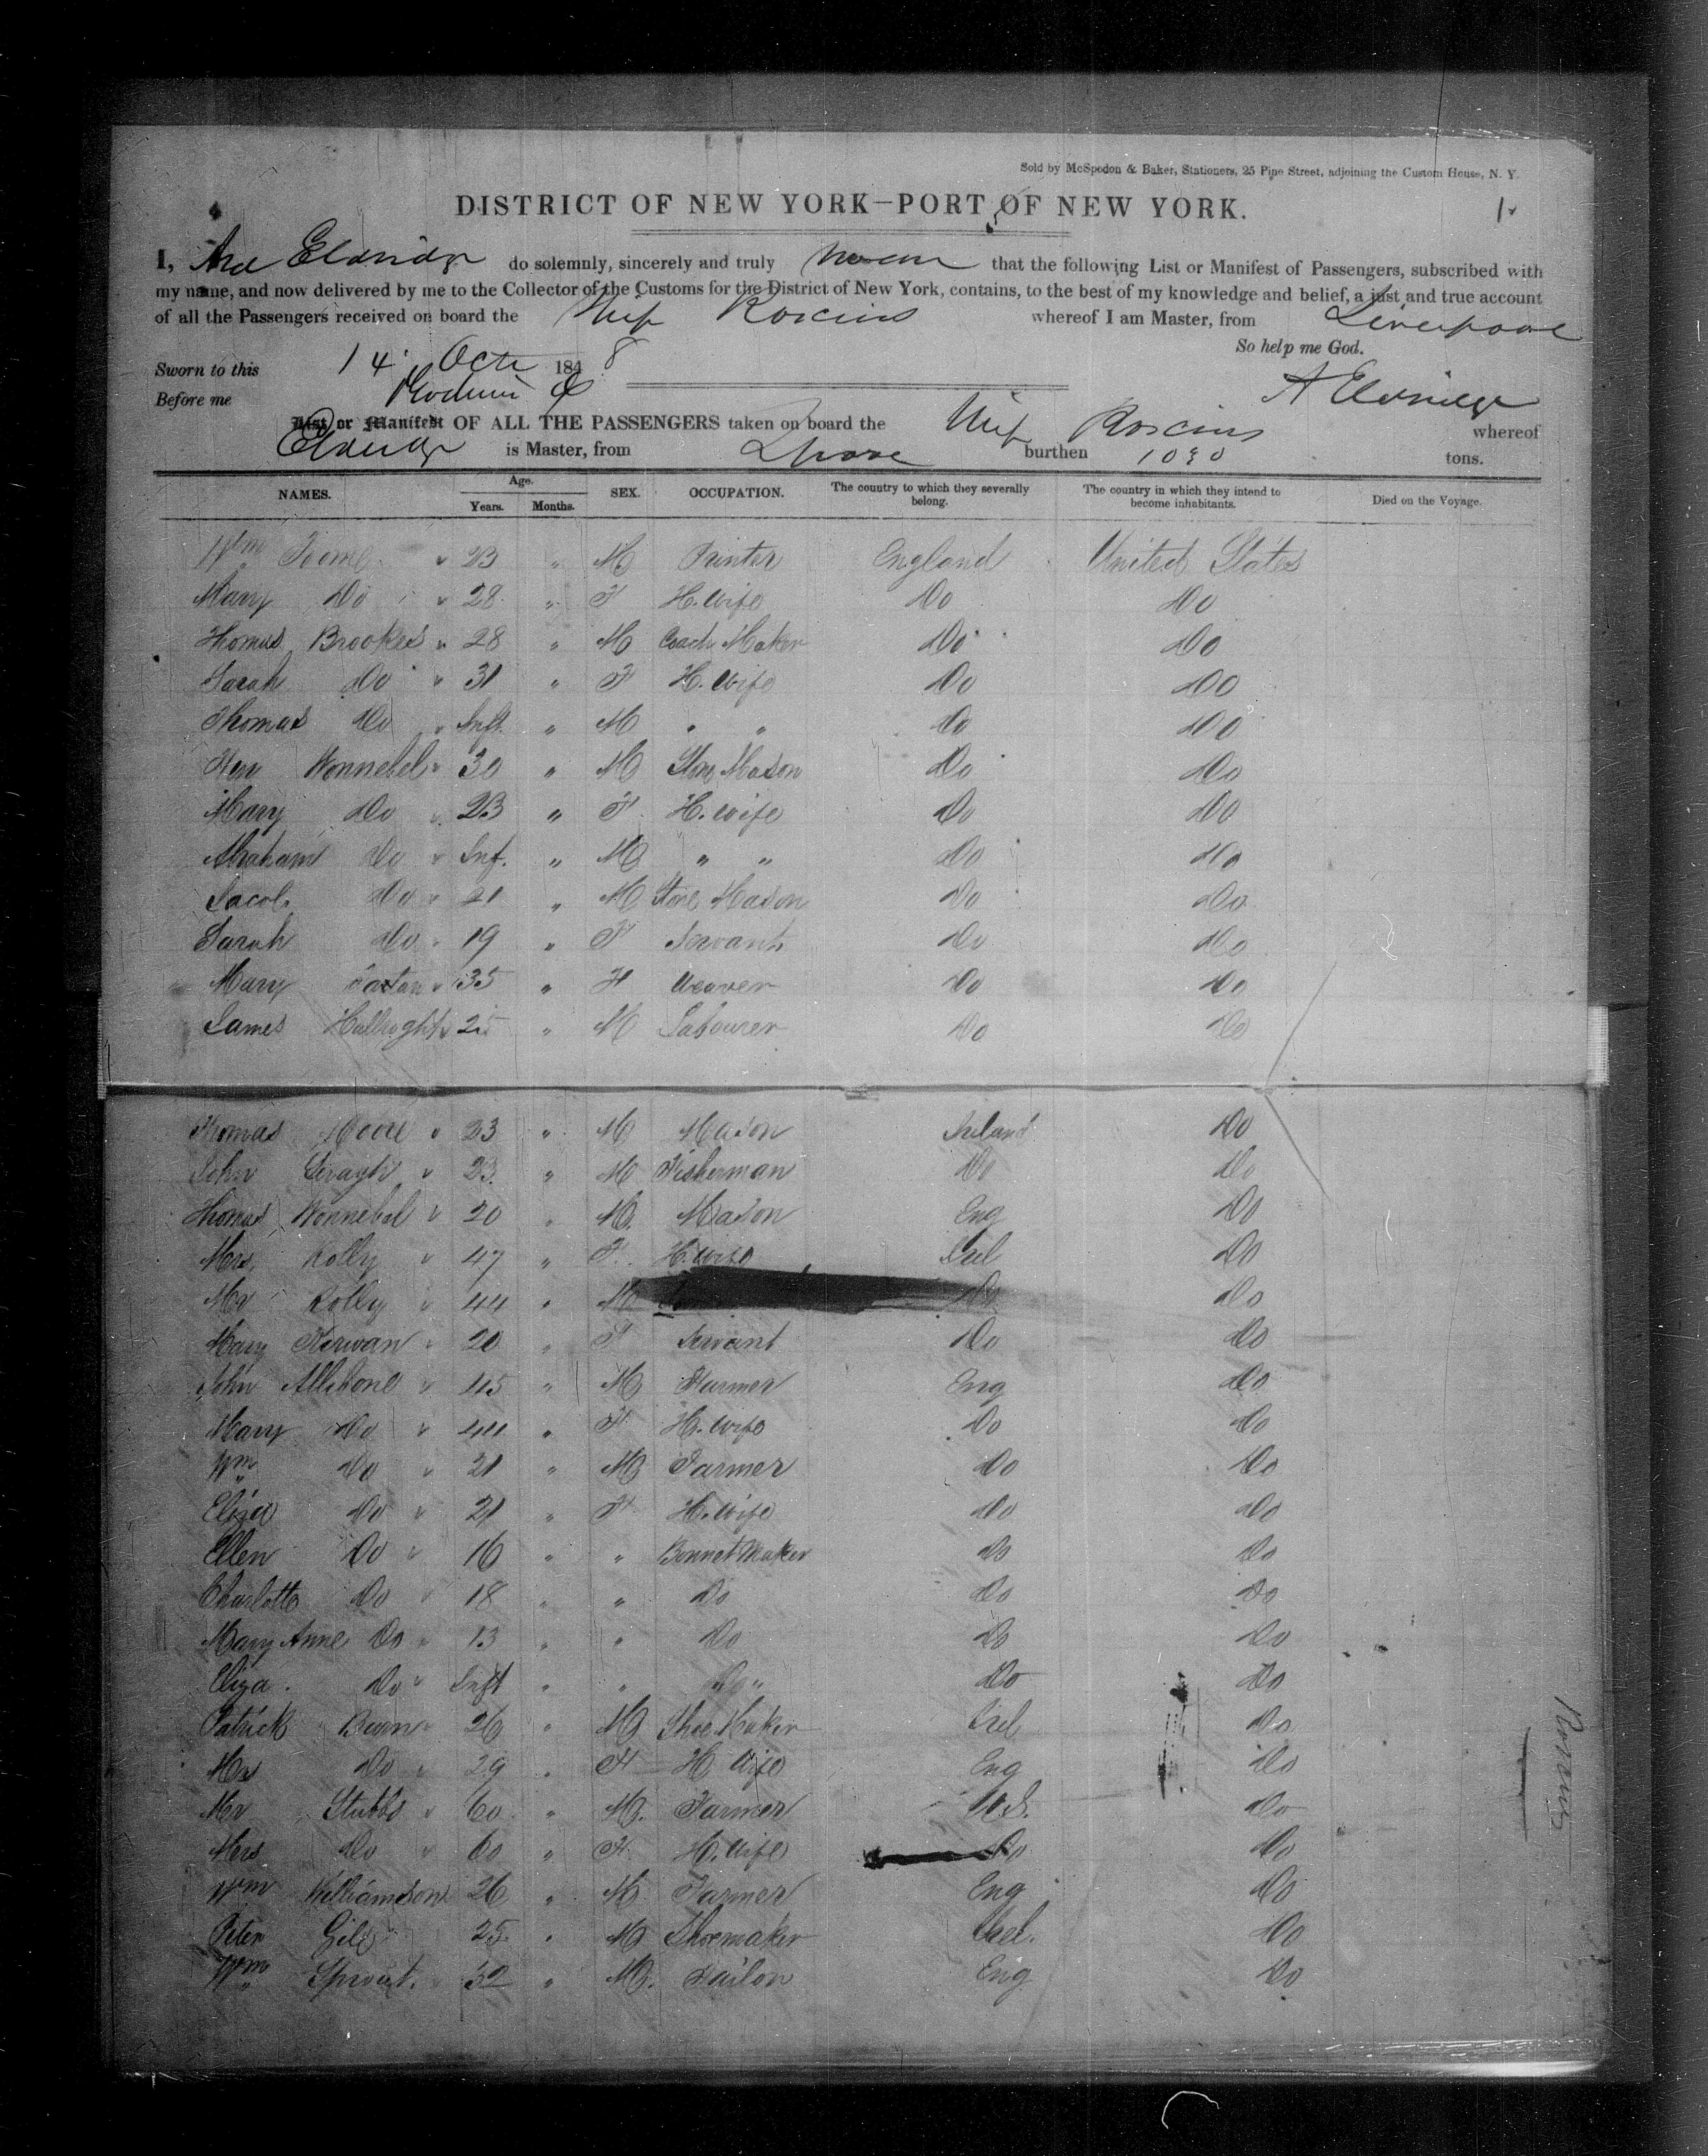 Sold by McSpedon & Baker, Stationers, 25 Pine Street, adjoining the Custom House, N. Y.
DISTRICT OF NEW YORK—PORT OF NEW YORK.
1
I, Asa Eldridge do solemnly, sincerely and truly swear that the following List or Manifest of Passengers, subscribed with
my name, and now delivered by me to the Collector of the Customs for the District of New York, contains, to the best of my knowledge and belief, a just and true account
of all the Passengers received on board the Ship Roscius whereof I am Master, from Liverpool
So help me God.
Sworn to this 14 Octr 1848
A Eldridge
Before me
List or Manifest OF ALL THE PASSENGERS taken on board the Ship Roscius whereof
Eldridge is Master, from Lpool burthen 1030 tons.
NAMES. Age. Years. Months. SEX. OCCUPATION. The country to which they severally belong. The country in which they intend to become inhabitants. Died on the Voyage.
Wm " 23 " M Printer England United States
Mary Do " 28 " F H. Wife Do Do
Thomas Brookes " 28 " M Coach Maker Do Do
Sarah Do " 31 " F H. Wife Do Do
Thomas Do " Inft. " M " " Do Do
Hen Wonnebel " 30 " M Stone Mason Do Do
Mary Do " 23 " F H. Wife Do Do
Abraham Do " Inf. " M " " Do Do
Jacob Do " 21 " M Stone Mason Do Do
Sarah Do " 19 " F Servant Do Do
Mary " 35 " F Weaver Do Do
James " 25 " M Labourer Do Do
Thomas Moore " 23 " M Mason Ireland Do
John " 23 " M Fisherman Do Do
Thomas Wonnebel " 20 " M. Mason Eng Do
Mrs Kelly " 47 " F. H. Wife Irel Do
Mr Kelly " 44 " M Do Do
Mary Kerwan " 20 " F Servant Do Do
John Allibone " 45 " M Farmer Eng Do
Mary Do " 44 " F H. Wife Do Do
Wm Do " 21 " M Farmer Do Do
Eliza Do " 21 " F H. Wife Do Do
Ellen Do " 16 " " Bonnet Maker Do Do
Charlotte Do " 18 " " Do Do Do
Mary Anne Do " 13 " " Do Do Do
Eliza Do " Inft " " Do " Do Do
Patrick " 26 " M Shoe Maker Irel Do
Mrs Do " 29 " F H Wife Eng Do
Mr Stubbs " 60 " M. Farmer U.S. Do
Mrs Do " 60 " F. H. Wife Do Do
Wm Williamson 26 " M Farmer Eng Do
Peter Gill 25 " M Shoemaker Irel. Do
Wm Sprout. 32 " M. Tailor Eng Do
Roscius